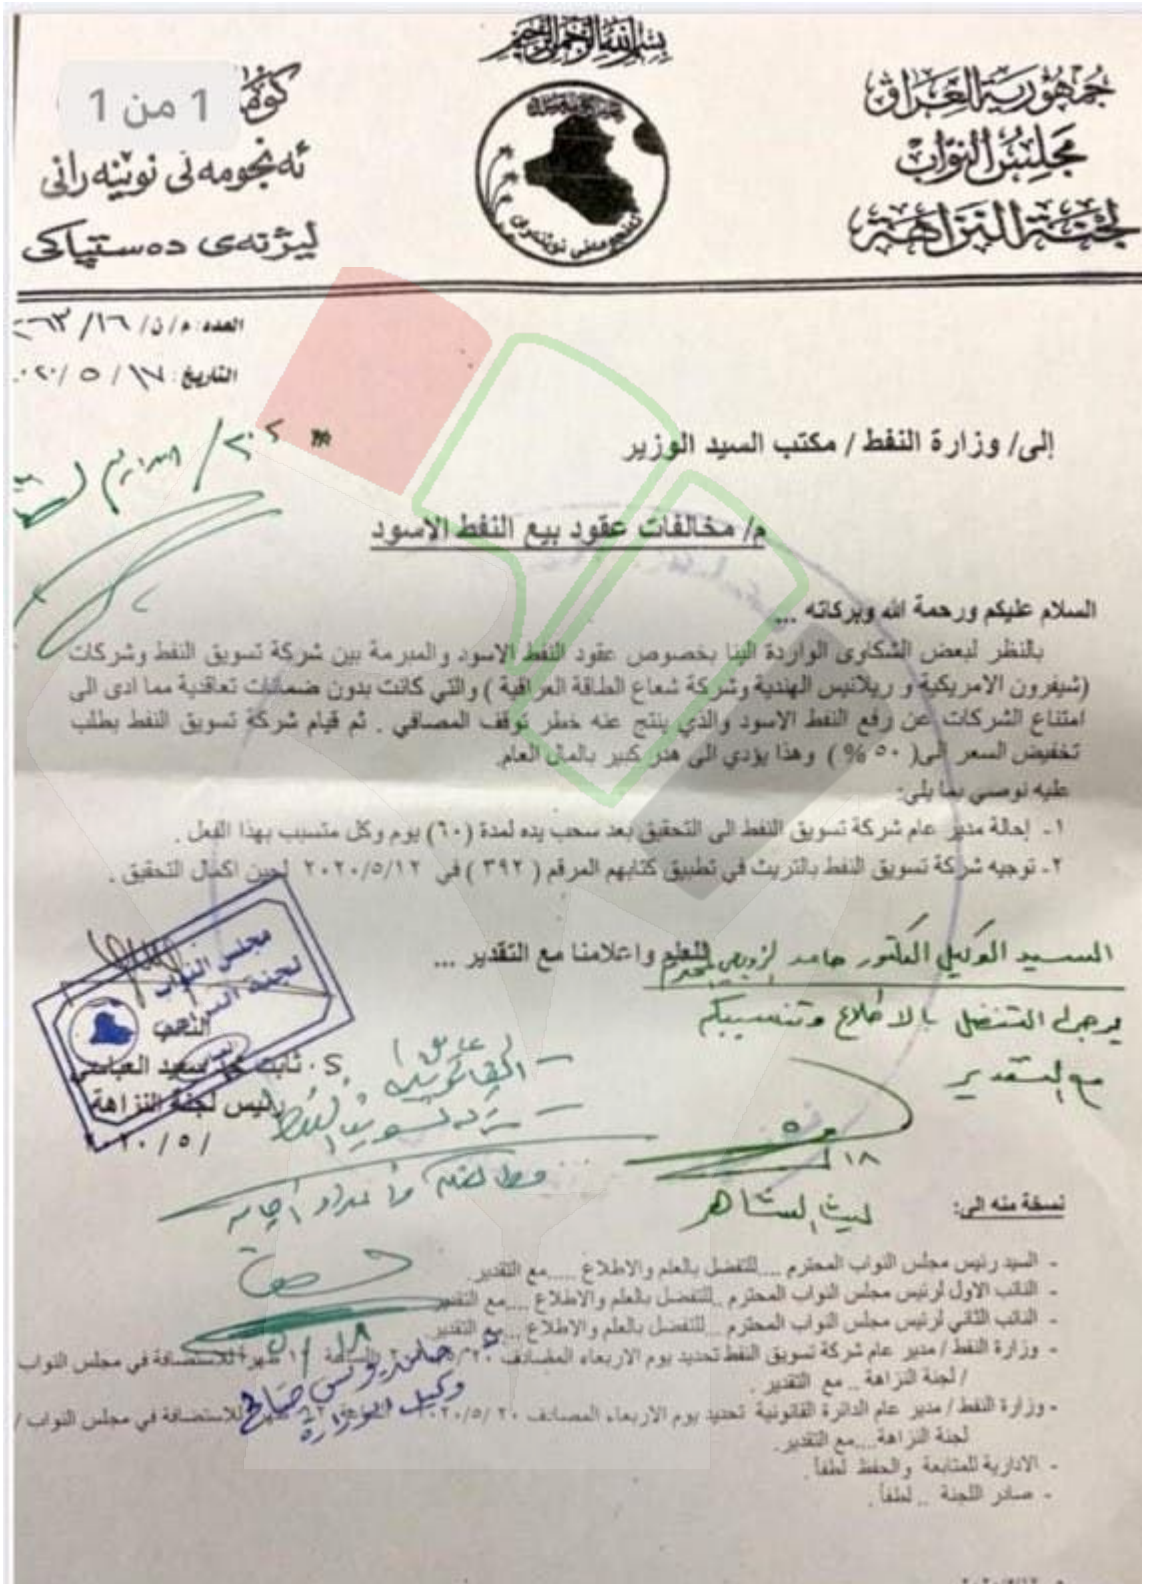 بسم الله الرحمن الرحيم
جمهورية العراق
مجلس النواب
لجنة النزاهة
1 من 1
ئەنجومەنی نوێنەرانی
لیژنەی دەستپاکی
العدد: م/ن/١٦/
التاريخ: ١٧/ ٥ /
إلى/ وزارة النفط / مكتب السيد الوزير
م/ مخالفات عقود بيع النفط الاسود
السلام عليكم ورحمة الله وبركاته ...
بالنظر لبعض الشكاوى الواردة الينا بخصوص عقود النفط الاسود والمبرمة بين شركة تسويق النفط وشركات
(شيفرون الامريكية و ريلانيس الهندية وشركة شعاع الطاقة العراقية ) والتي كانت بدون ضمانات تعاقدية مما ادى الى
امتناع الشركات عن رفع النفط الاسود والذي ينتج عنه خطر توقف المصافي . ثم قيام شركة تسويق النفط بطلب
تخفيض السعر الى( ٥٠ % ) وهذا يؤدي الى هدر كبير بالمال العام.
عليه نوصي بما يلي:
١- إحالة مدير عام شركة تسويق النفط الى التحقيق بعد سحب يده لمدة (٦٠) يوم وكل متسبب بهذا الفعل .
٢- توجيه شركة تسويق النفط بالتريث في تطبيق كتابهم المرقم ( ٣٩٢ ) في ٢٠٢٠/٥/١٢ لحين اكمال التحقيق .
للعلم واعلامنا مع التقدير ...
السيد الوكيل الدكتور حامد المحترم
يرجى التفضل بالاطلاع وتنسيبكم
مع التقدير
١٨
ليث الشاهر
مجلس النواب
لجنة النزاهة
النائب
ثابت محمد سعيد العباسي
رئيس لجنة النزاهة
/ ٥ /
القانونية
١٨
حامد يونس صالح
وكيل الوزارة
نسخة منه الى:
- السيد رئيس مجلس النواب المحترم ....للتفضل بالعلم والاطلاع .....مع التقدير.
- النائب الاول لرئيس مجلس النواب المحترم ..للتفضل بالعلم والاطلاع ....مع التقدير
- النائب الثاني لرئيس مجلس النواب المحترم ...للتفضل بالعلم والاطلاع ...مع التقدير
- وزارة النفط / مدير عام شركة تسويق النفط تحديد يوم الاربعاء المصادف ٢٠ ظهرا للاستضافة في مجلس النواب
/ لجنة النزاهة .. مع التقدير .
- وزارة النفط / مدير عام الدائرة القانونية تحديد يوم الاربعاء المصادف ٢٠ /٥/ للاستضافة في مجلس النواب /
لجنة النزاهة....مع التقدير.
- الادارية للمتابعة والحفظ لطفا.
- صادر اللجنة .. لطفا .